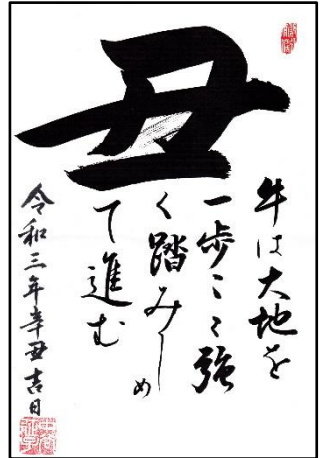 丑
牛は大地を
一歩〻〻強
く踏みしめ
て進む
令和三年辛丑吉日